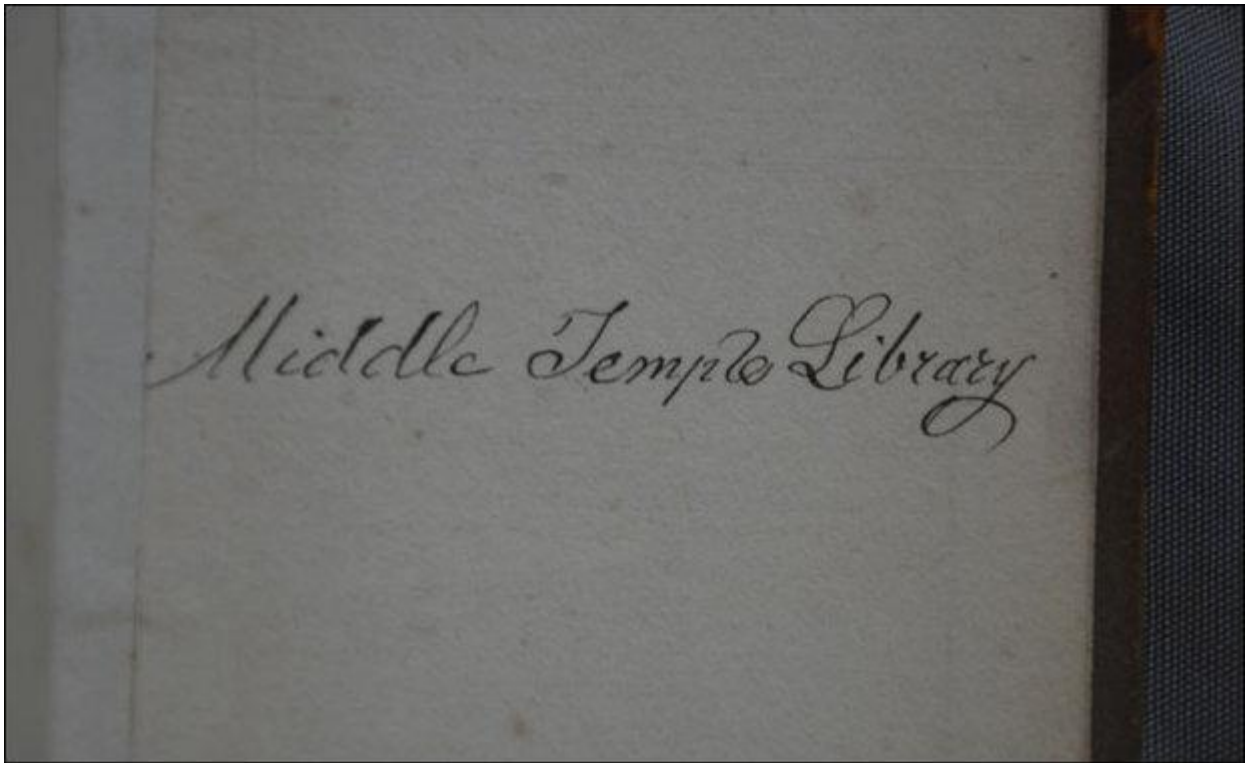 Middle Temple Library